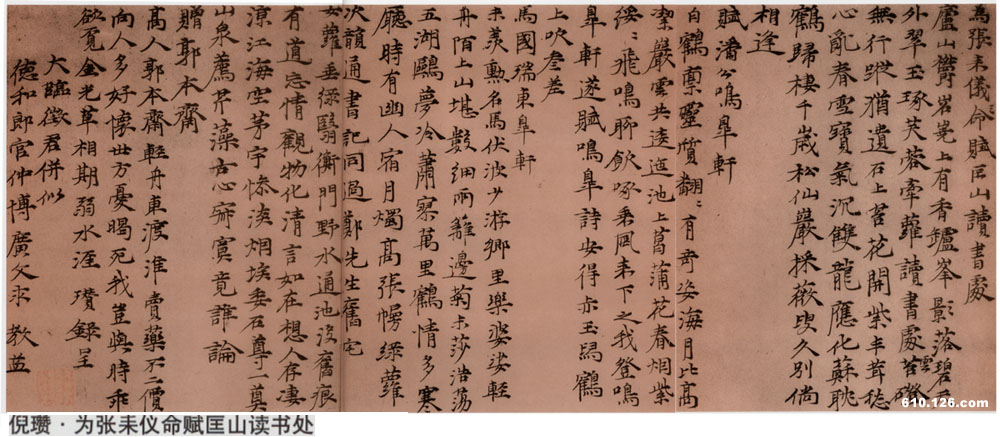 為張耒儀命賦匡山讀書處
廬山鬱岧嶤上有香鑪峯影落碧雲
外翠玉琢芙蓉牽蘿讀書處苔磴
無行蹤猶遺石上苔花開紫芊茸嵇
心亂春雪寶氣沉雙龍應化蘇耽
鶴歸棲千歲松仙巖採薇叟久別倘
相逢
賦潘公鳴皐軒
白鶴稟靈質翩〻有奇姿海月比高
潔巖雲共逶迤池上菖蒲花春烟紫
綏〻飛鳴聊飲啄乘風来下之我登鳴
皐軒遂賦鳴皐詩安得赤玉舄鶴
上吹參差
馬國瑞東皐軒
未羨勳名馬伏波少游鄉里樂婆娑輕
舟陌上山堪數細雨離邊菊未莎浩蕩
五湖鷗夢冷蕭寥萬里鶴情多寒
廳時有幽人宿月燭高張幔綠蘿
次韻通書記同過鄭先生舊宅
女蘿垂綠翳衡門野水通池沒舊痕
有道忘情觀物化清言如在想人存淒
涼江海空茅宇慘淡烟埃垂石尊一奠
山泉薦芹藻古心寂寞竟誰論
贈郭本齋
高人郭本齋輕舟東渡淮賣藥不二價
向人多好懷世方憂暍死我豈與時乖
欲覓金光草相期弱水涯 瓚錄呈
大臨徵君併似
德和郎官仲博廣文求 教益
610.126.com
倪瓒·为张耒仪命赋匡山读书处